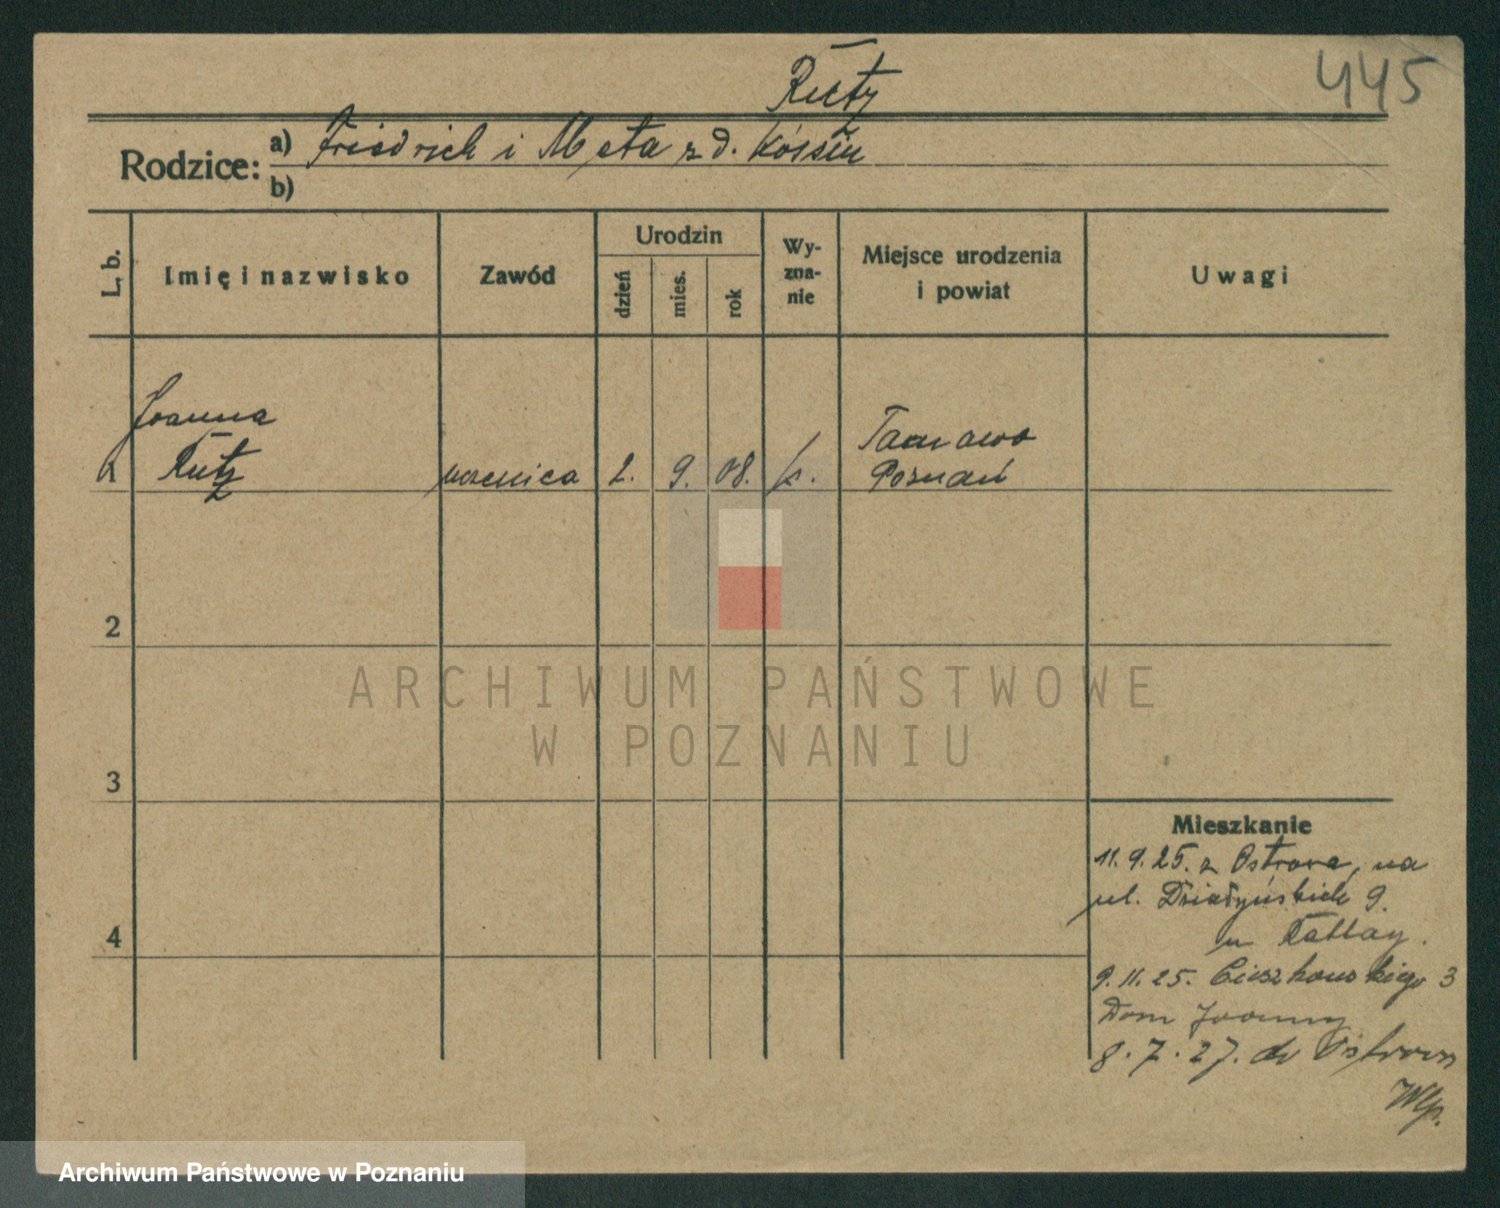 445
Rutz
Rodzice: a) Friedrich i Meta z d.
b)
L. b.
Imię i nazwisko
Zawód
Urodzin
dzień
mies.
rok
Wy-
zna-
nie
Miejsce urodzenia
i powiat
Uwagi
Joanna
Rutz
uczenica
2. 9. 08.
Tarnowo
Poznań
2
3
4
Mieszkanie
11. 9. 25. z Ostrowa, na
ul. Działyńskich 9.
u
9. 11. 25. Cieszkowskiego 3
Dom Joanny
8. 7. 27. do Ostrowa
Wlp.
ARCHIWUM PAŃSTWOWE
W POZNANIU
Archiwum Państwowe w Poznaniu